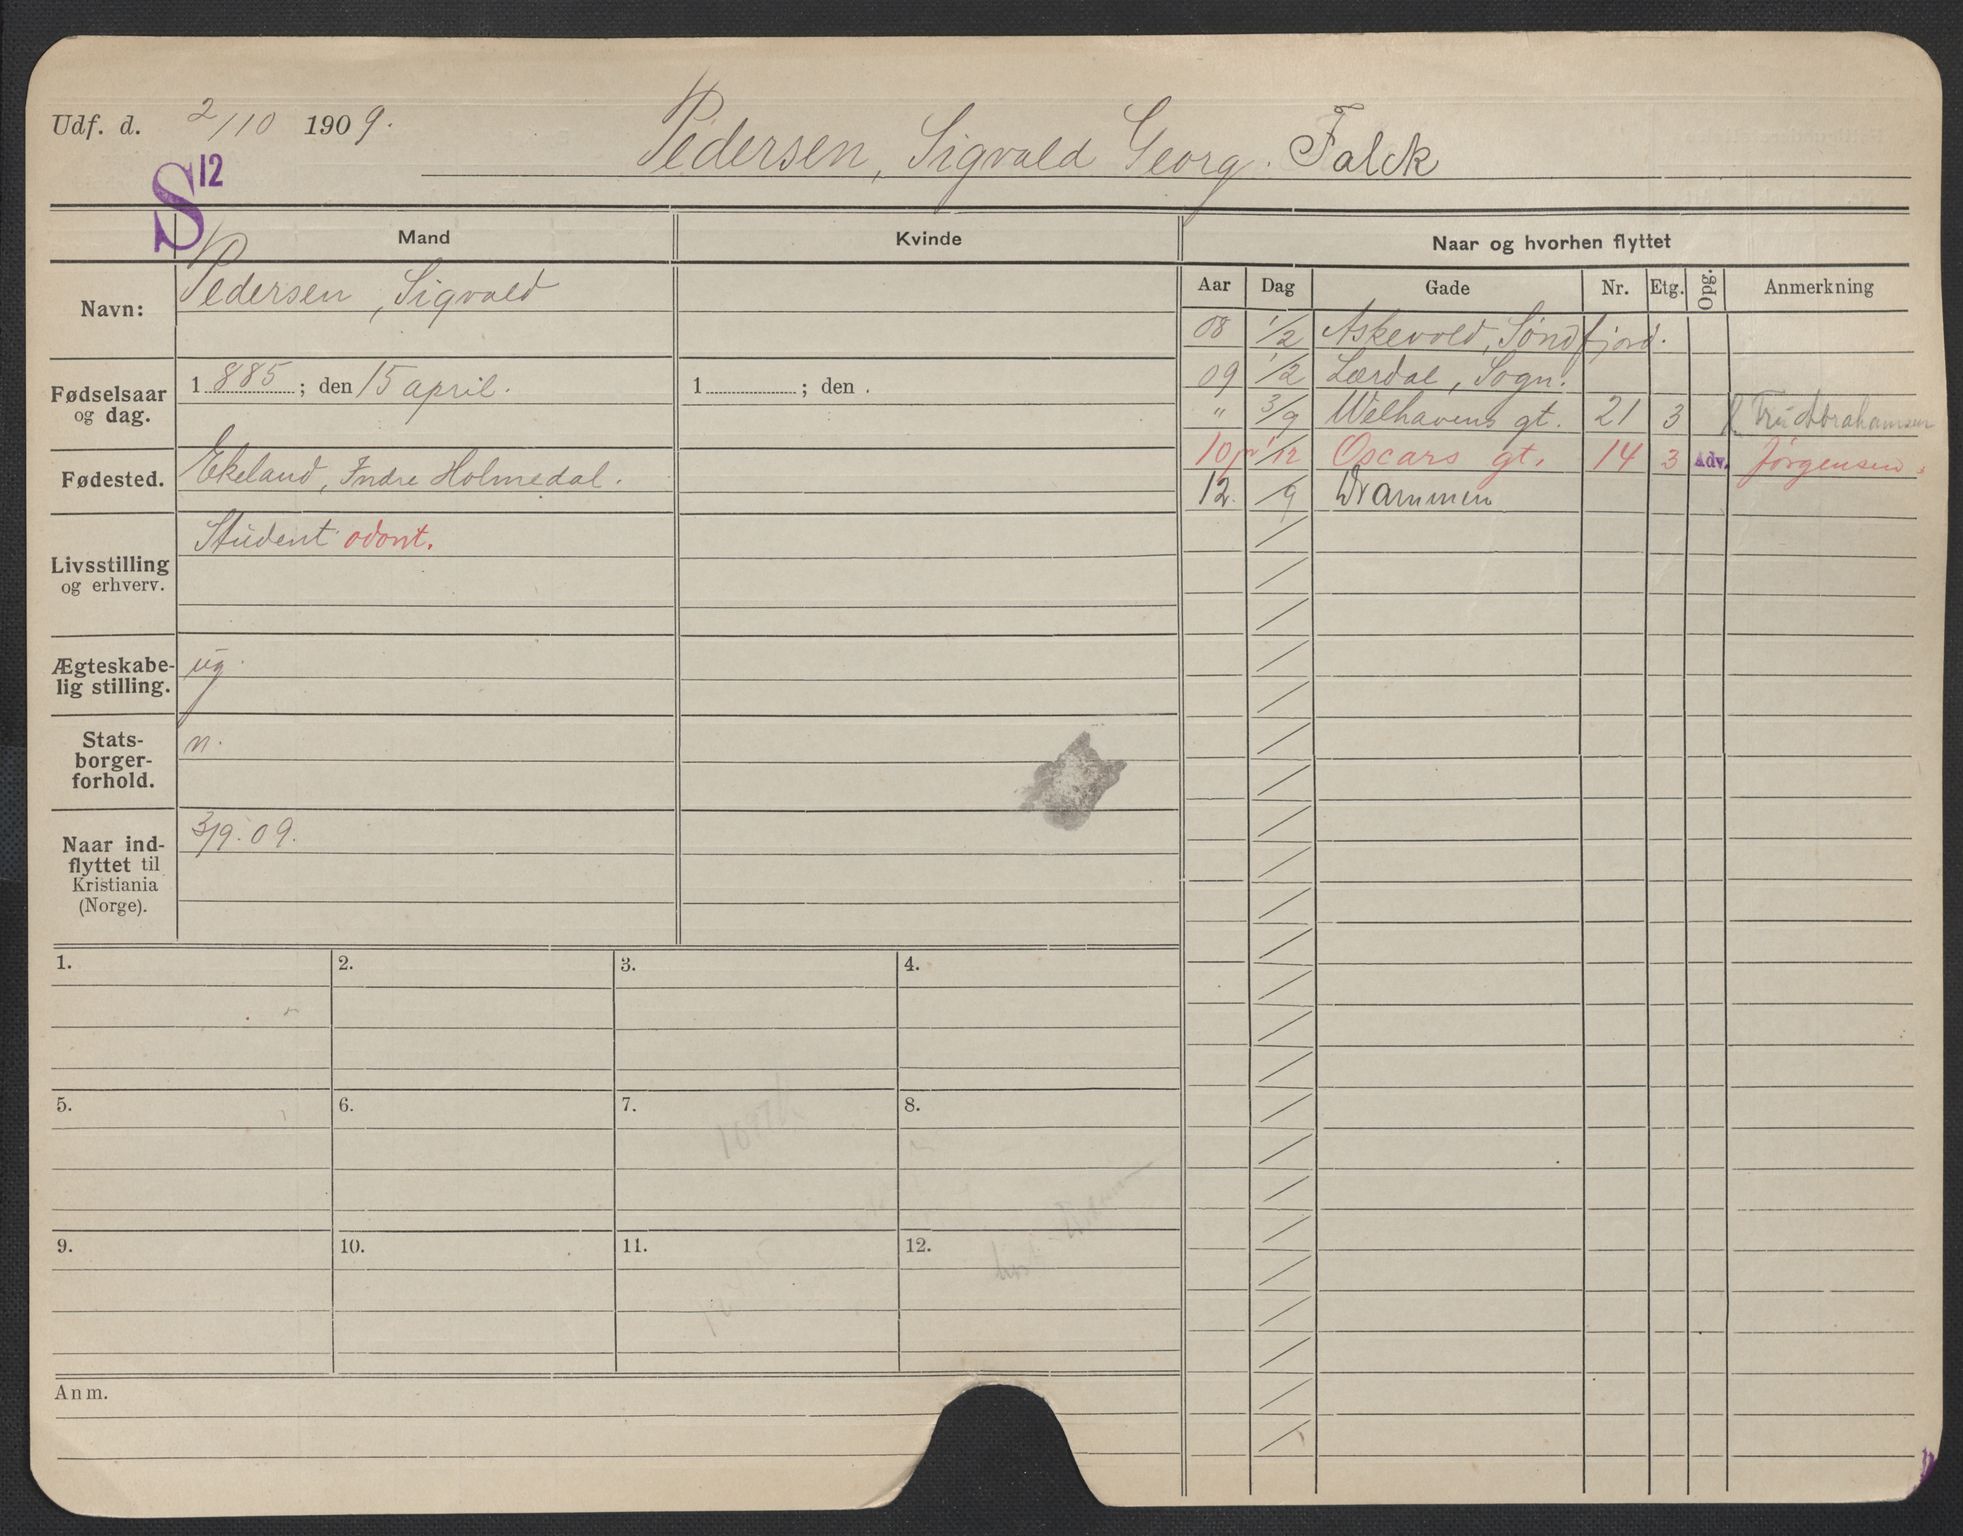 Udf. d. 2/10 1909.
Pedersen, Sigvald Georg. Falck
S 12
Mand
Kvinde
Naar og hvorhen flyttet
Navn:
Pedersen, Sigvald
Aar
Dag
Gade
Nr.
Etg.
Opg.
Anmerkning
08 1/2 Askevold, Søndfjord.
09 1/2 Lærdal, Sogn.
" 3/9 Welhavens gt. 21 3 Fru Abrahamsen
10 1/12 Oscars gt. 14 3 Adv. Jørgensen
12. /9 Drammen
Fødselsaar
og dag.
1885; den 15 april.
1 ; den .
Fødested.
Ekeland, Indre Holmedal.
Livsstilling
og erhverv.
Student odont.
Ægteskabe-
lig stilling.
ug.
Stats-
borger-
forhold.
n.
Naar ind-
flyttet til
Kristiania
(Norge).
3/9. 09.
1.
2.
3.
4.
5.
6.
7.
8.
9.
10.
11.
12.
Anm.